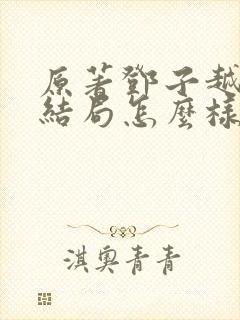 原著鄧子越
結局怎麼樣
淇奧青青